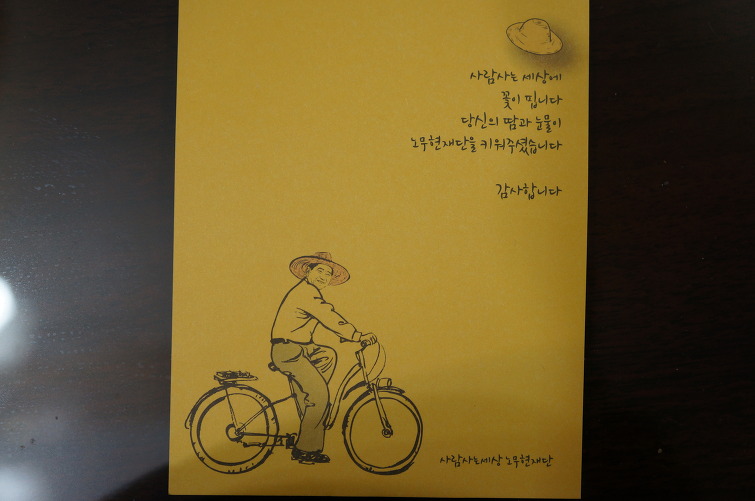 사람사는 세상에
꽃이 핍니다
당신의 땀과 눈물이
노무현재단을 키워주셨습니다
감사합니다
사람사는세상 노무현재단